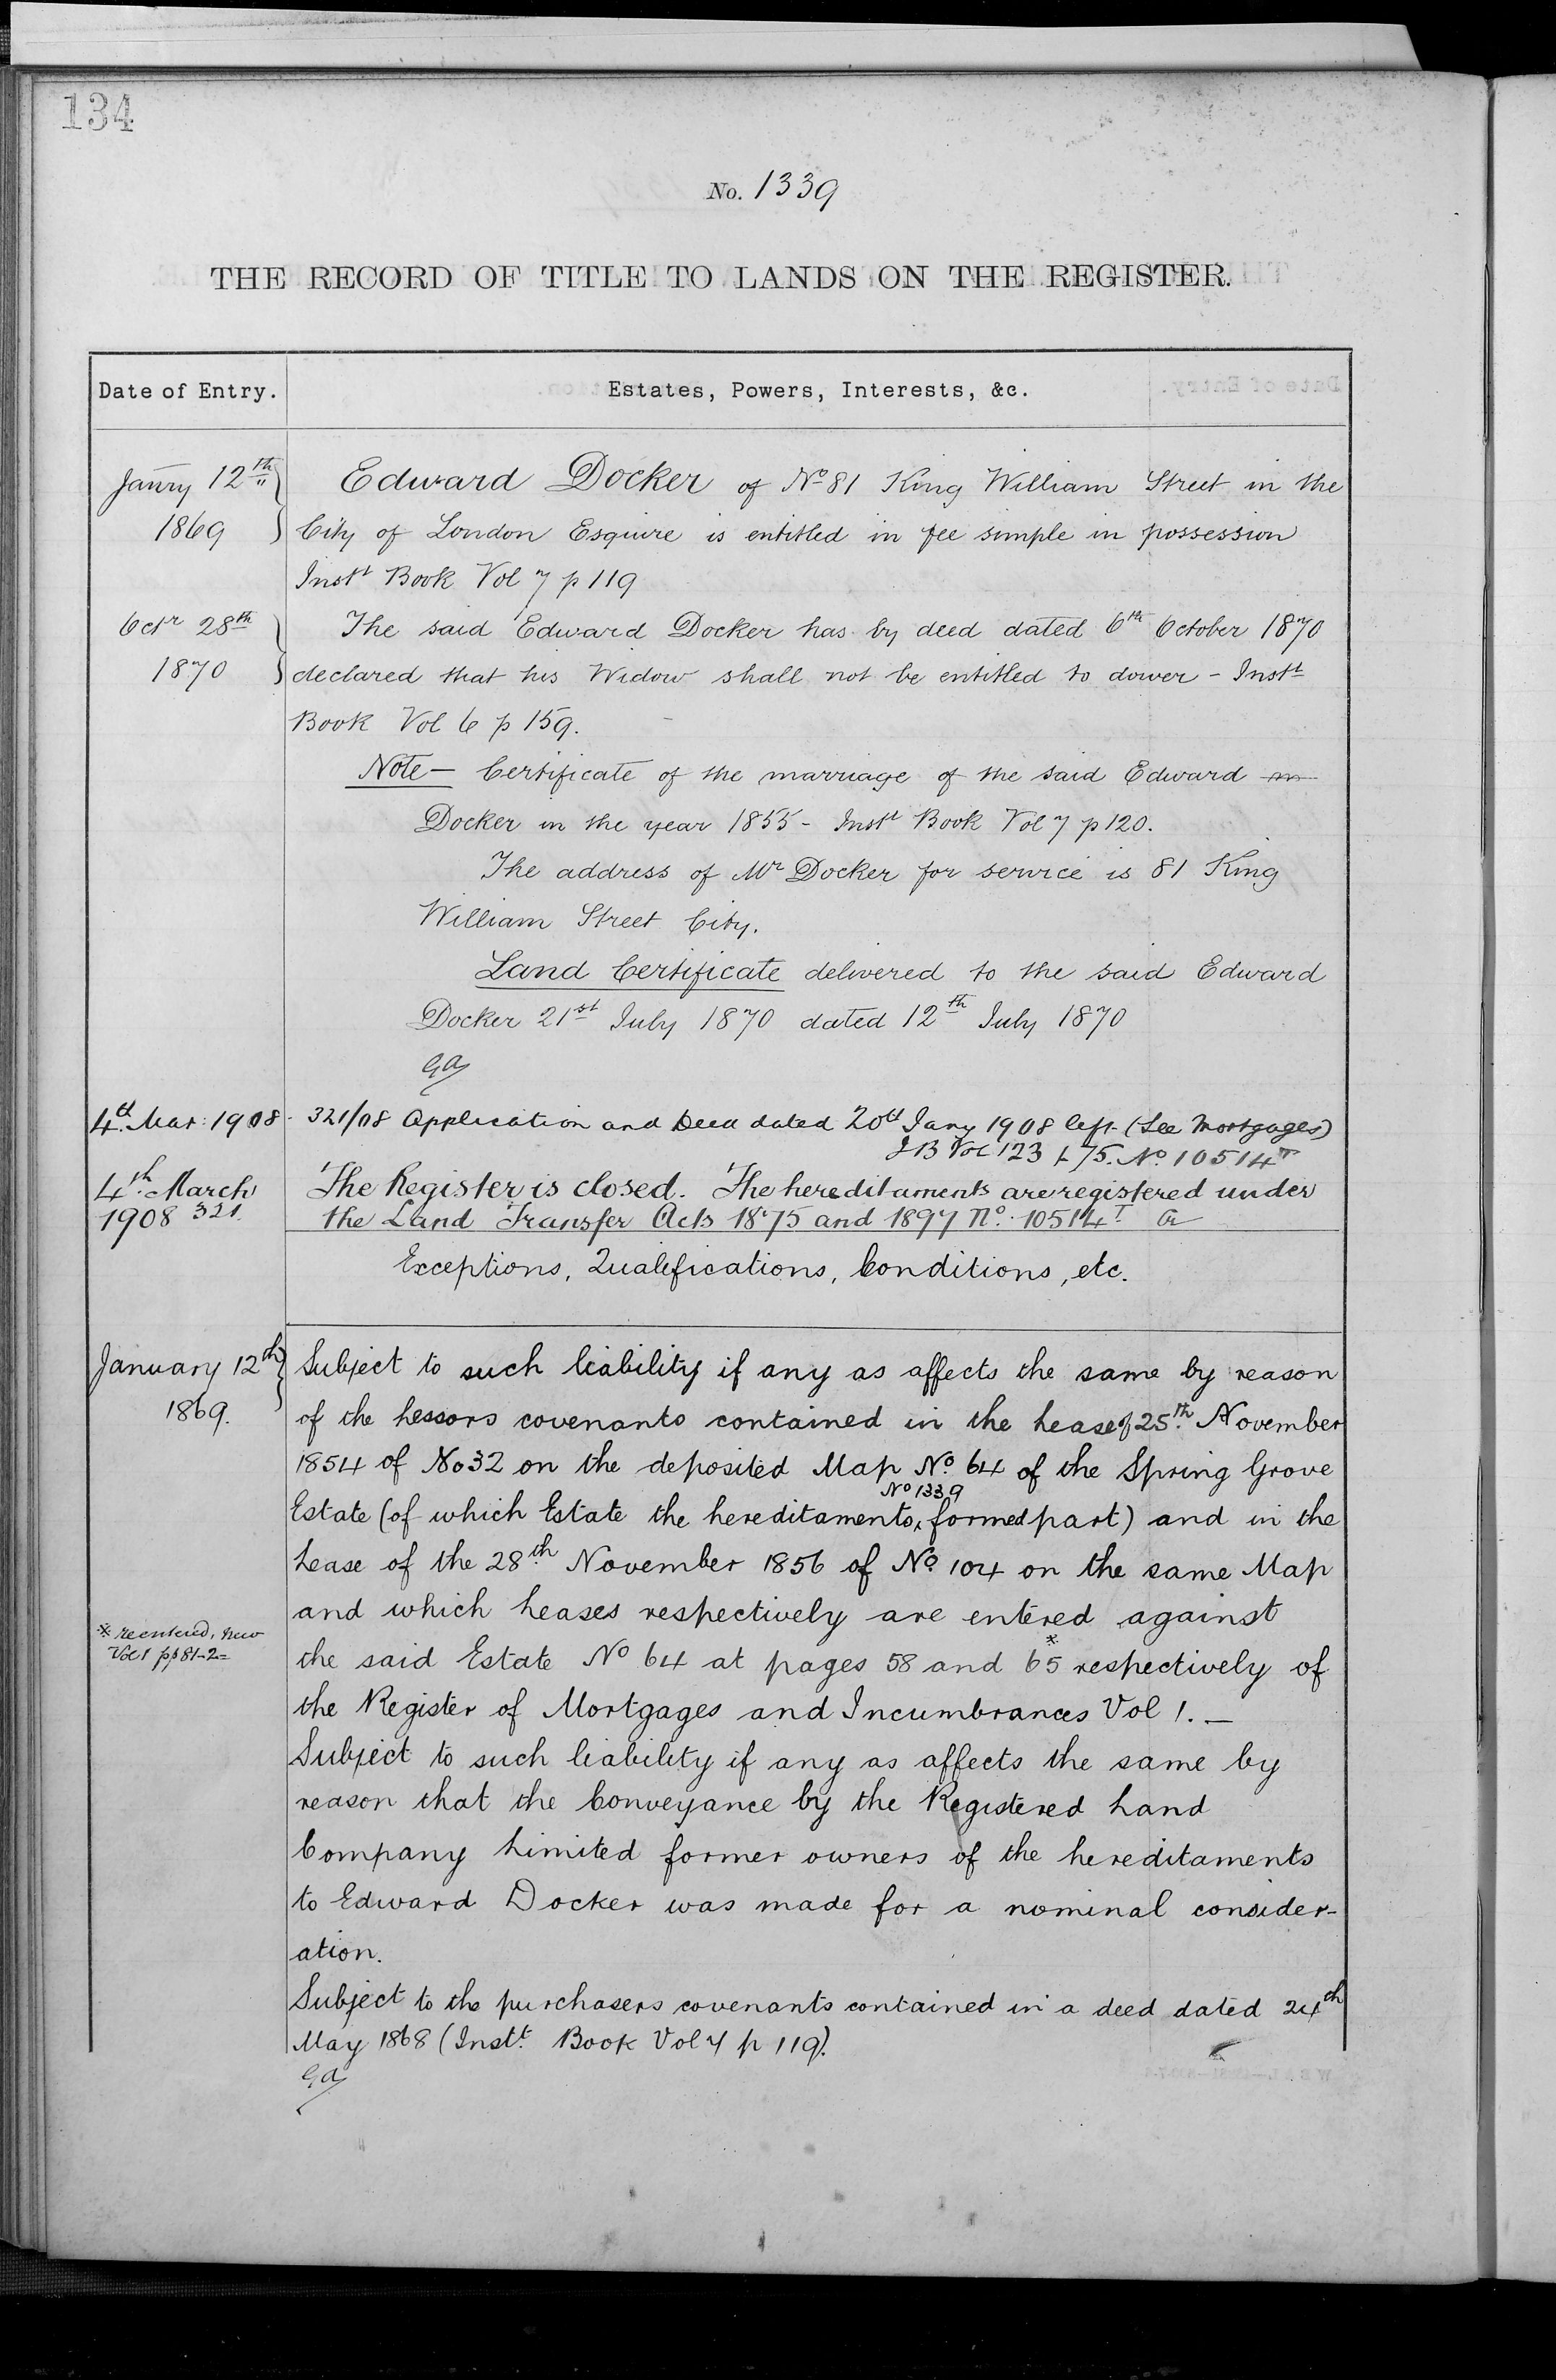 134
No. 1339
THE RECORD OF TITLE TO LANDS ON THE REGISTER.
Date of Entry.
Estates, Powers, Interests, &c.
Janry 12th
1869
Edward Docker of No 81 King William Street in the
City of London Esquire is entitled in fee simple in possession
Instt Book Vol 7 p 119
Octr 28th
1870
The said Edward Docker has by deed dated 6th October 1870
declared that his Widow shall not be entitled to dower - Instt
Book Vol 6 p 159.
Note - Certificate of the marriage of the said Edward
Docker in the year 1855 - Instt Book Vol 7 p 120.
The address of Mr Docker for service is 81 King
William Street City.
Land Certificate delivered to the said Edward
Docker 21st July 1870 dated 12th July 1870
GA
4th Mar: 1908
321/08 Application and Deed dated 20th Jany 1908 left. (See Mortgages)
I B Vol 123 p 75. No. 10514T
4th March
1908 321.
The Register is closed. The hereditaments are registered under
the Land Transfer Acts 1875 and 1897 No. 10514T
Exceptions, Qualifications, Conditions, etc.
January 12th
1869.
Subject to such liability if any as affects the same by reason
of the Lessors covenants contained in the Lease of 25th November
1854 of No 32 on the deposited Map No. 64 of the Spring Grove
No 1339
Estate (of which Estate the hereditaments formed part) and in the
Lease of the 28th November 1856 of No. 104 on the same Map
and which Leases respectively are entered against
* reentered, new
Vol 1 pp 81-2=
the said Estate No 64 at pages 58 and 65* respectively of
the Register of Mortgages and Incumbrances Vol 1. —
Subject to such liability if any as affects the same by
reason that the Conveyance by the Registered Land
Company Limited former owners of the hereditaments
to Edward Docker was made for a nominal consider-
ation.
Subject to the purchasers covenants contained in a deed dated 24th
May 1868 (Instt. Book Vol 7 p 119).
GA